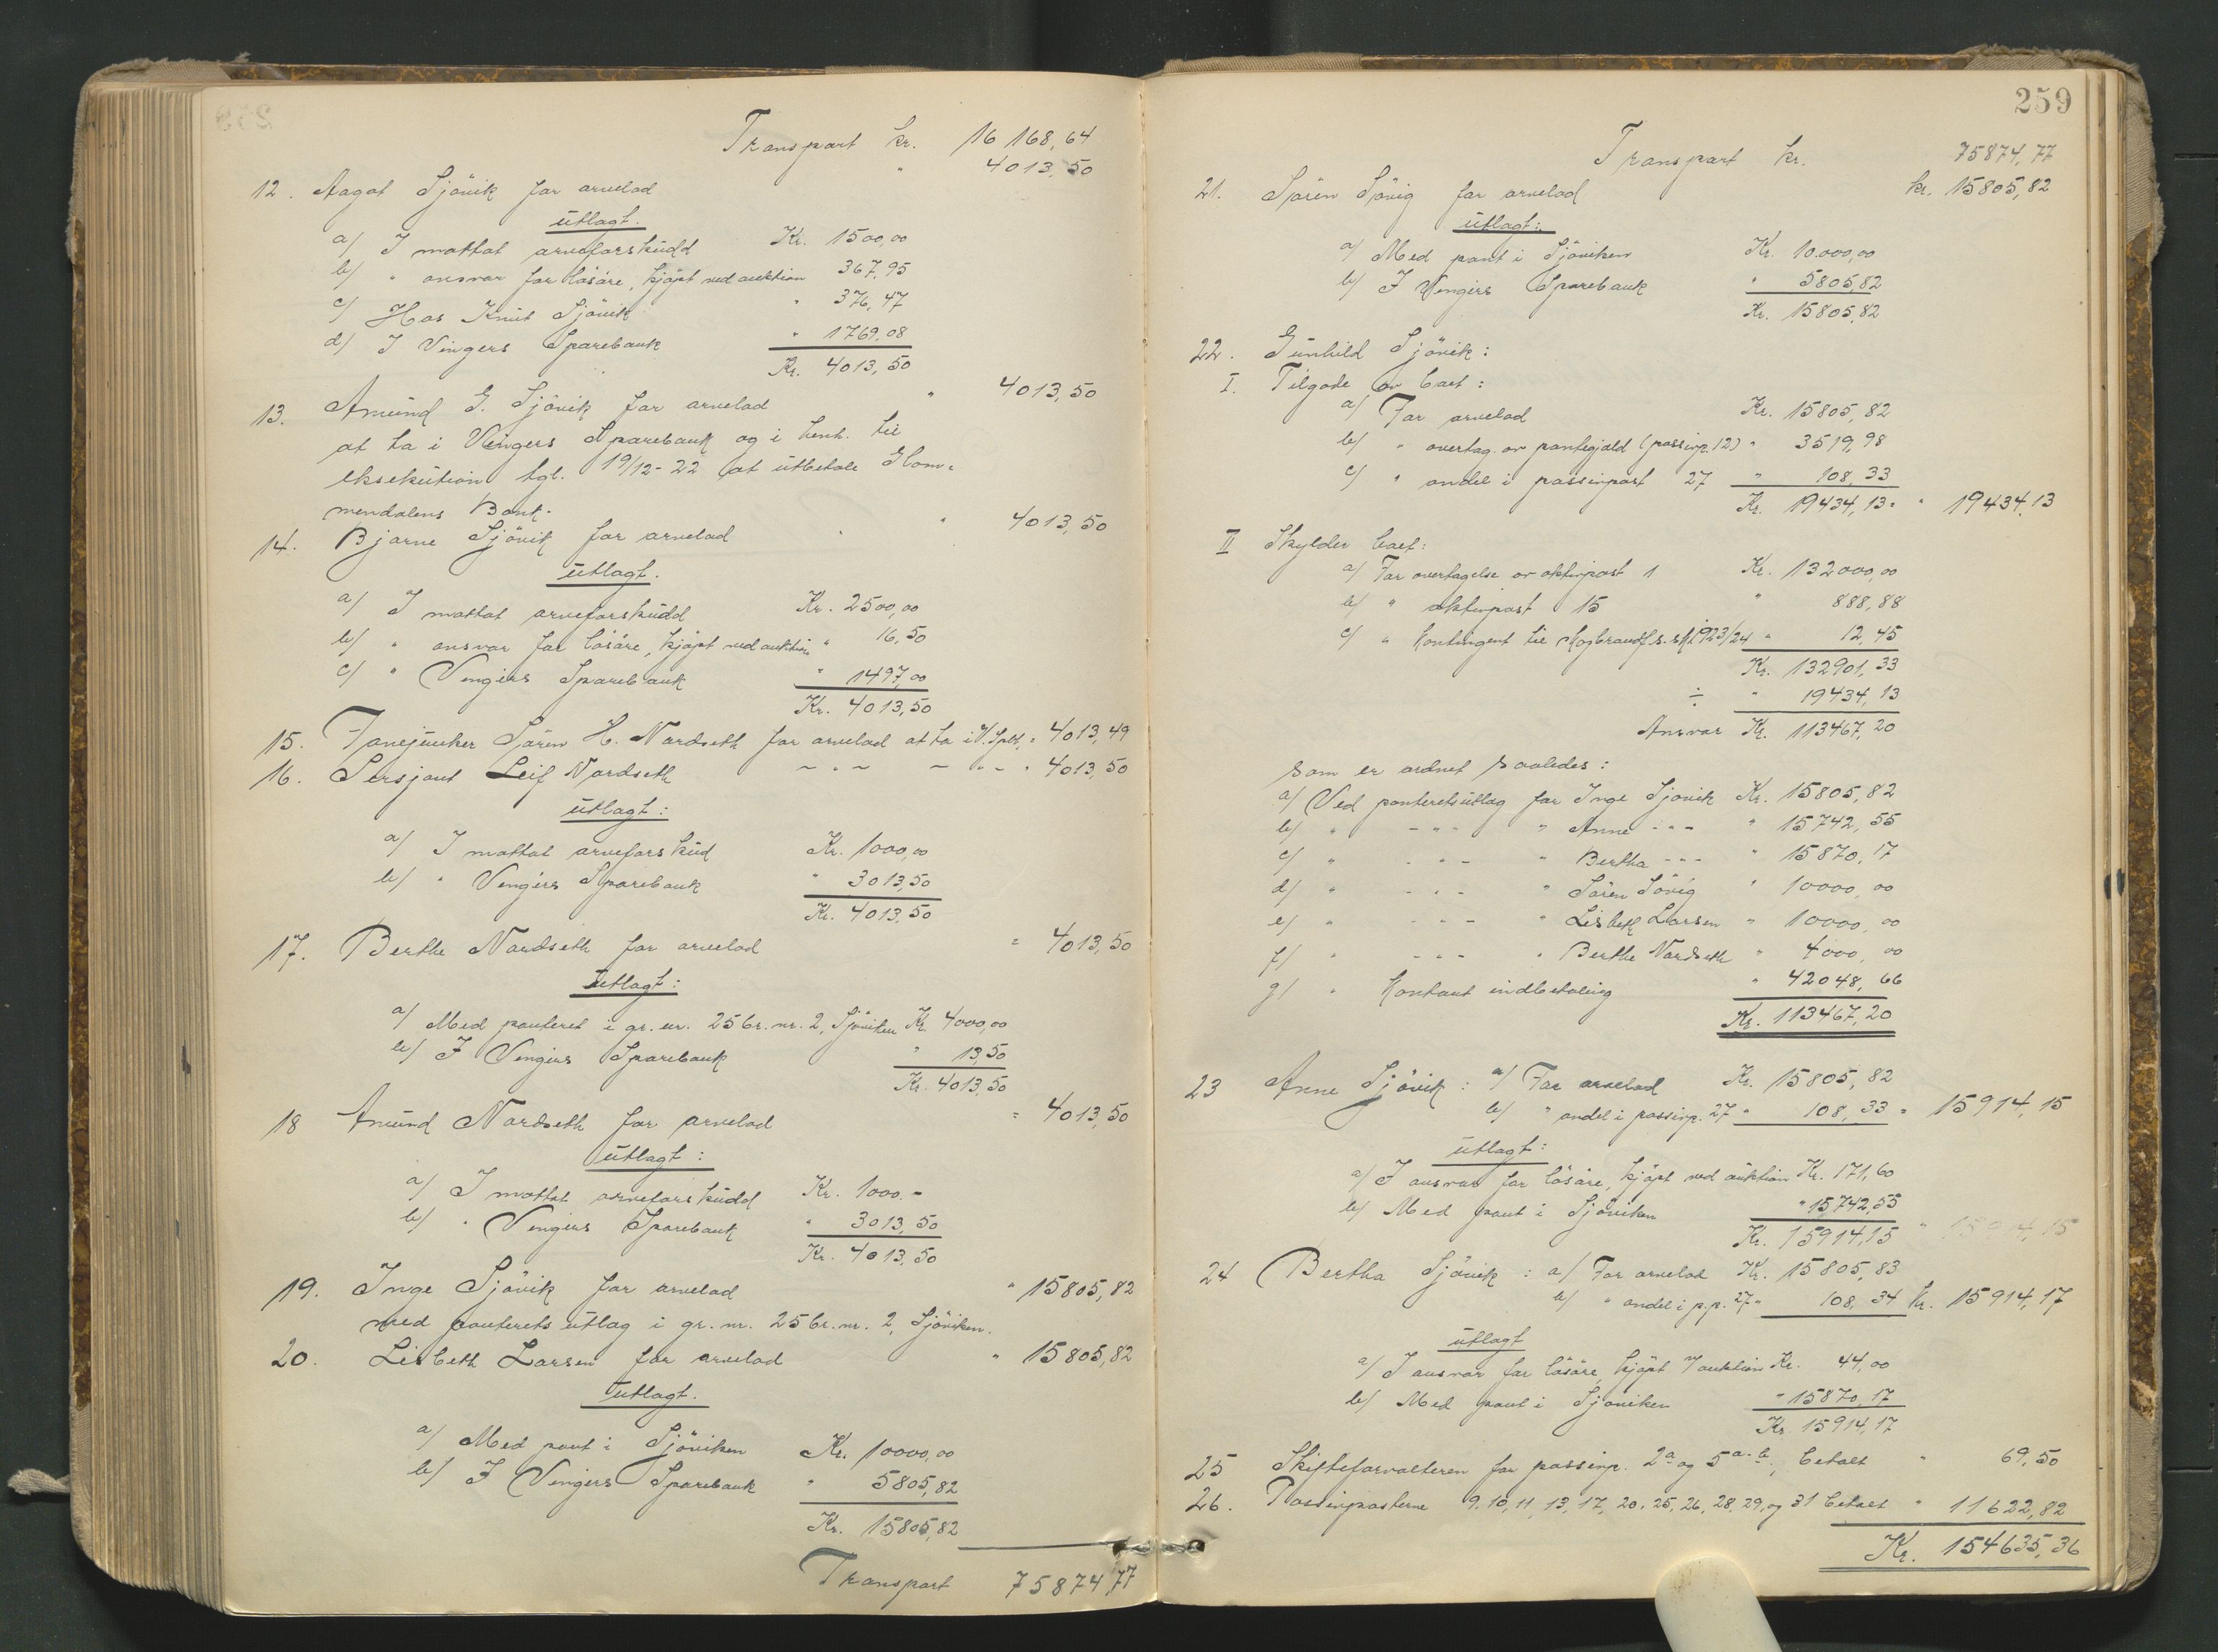 Transport kr. 16 168,64
12. Aagot Sjövik for arvelod " 4013,50
utlagt.
a) I mottat arveforskudd Kr. 1500,00
b) " ansvar for lösöre, kjöpt ved auktion 367,95
c) Hos Knut Sjövik " 376,47
d) I Vingers Sparebank " 1769,08
Kr. 4013,50
13. Amund G. Sjövik for arvelod " 4013,50
at ta i Vingers Sparebank og i henh. til
eksekution tgl. 19/12-22 at utbetale Glom=
mendalens Bank.
14. Bjarne Sjövik for arvelod " 4013,50
utlagt.
a) I mottat arveforskudd Kr. 2500,00
b) " ansvar for lösöre, kjöpt ved auktion " 16,50
c) " Vingers Sparebank " 1497,00
Kr. 4013,50
15. Fanejunker Sören H. Nordseth for arvelod at ta i V. Spbk. = 4013,49
16. Sersjant Leif Nordseth - " - - " - " 4013,50
utlagt:
a) I mottat arveforskud Kr. 1000,00
b) " Vingers Sparebank " 3013,50
Kr. 4013,50
17. Berthe Nordseth for arvelod = 4013,50
utlagt:
a) Med panteret i gr. nr. 25 br. nr. 2, Sjöviken Kr. 4000,00
b) I Vingers Sparebank " 13,50
Kr. 4013,50
18 Amund Nordseth for arvelod = 4013,50
utlagt:
a) I mottat arveforskudd Kr. 1000.-
b) " Vingers Sparebank " 3013,50
Kr. 4013,50
19. Inge Sjövik for arvelod " 15805,82
med panterets utlag i gr. nr. 25 br. nr. 2, Sjöviken.
20. Lisbeth Larsen for arvelod " 15805,82
utlagt.
a) Med pant i Sjöviken Kr. 10000,00
b) I Vingers Sparebank " 5805,82
Kr. 15805,82
Transport 75874,77
259
Transport kr. 75874,77
21. Sören Sövig for arvelod kr. 15805,82
utlagt:
a) Med pant i Sjöviken Kr. 10.000,00
b) I Vingers Sparebank " 5805,82
Kr. 15805,82
22. Gunhild Sjövik:
I. Tilgode av boet:
a) For arvelod Kr. 15805,82
b) " overtag. av pantegjæld (passivp. 12) " 3519,98
c) " andel i passivpost 27 " 108,33
Kr. 19434,13 = " 19434,13
II Skylder boet:
a) For overtagelse av aktivpost 1 Kr. 132000,00
b) " aktivpost 15 " 888,88
c) " Kontingent til Skogbrandf.s. skt 1923/24 " 12,45
Kr. 132901,33
÷ " 19434,13
Ansvar Kr. 113467,20
som er ordnet saaledes:
a) Ved panteretsutlag for Inge Sjövik Kr. 15805,82
b) " - " - " Anne - " - " 15742,55
c) " - " - " Bertha - " - " 15870,17
d) " - " - " Sören Sövig " 10000,00
e) " - " - " Lisbeth Larsen " 10000,00
f) " - " - " Berthe Nordseth " 4000,00
g) " Kontant indbetaling " 42048,66
Kr. 113467,20
23 Anne Sjövik: a) For arvelod Kr. 15805,82
b) " andel i passivp. 27 " 108,33 = 15914,15
utlagt:
a) I ansvar for lösöre, kjöpt ved auktion Kr. 171,60
b) Med pant i Sjöviken " 15742,55
Kr. 15914,15 " 15914,15
24 Bertha Sjövik: a) For arvelod Kr. 15805,83
b) " andel i p.p. 27 " 108,34 Kr. 15914,17
utlagt
a) I ansvar for lösöre, kjöpt v/ auktion Kr. 44,00
b) Med pant i Sjöviken " 15870,17
Kr. 15914,17
25 Skifteforvalteren for passivp. 2a og 5a.b., betalt " 69,50
26. Passivposterne 9.10,11,13,17,20,25,26,28,29,og 31 betalt " 11622,82
Kr. 154635,36